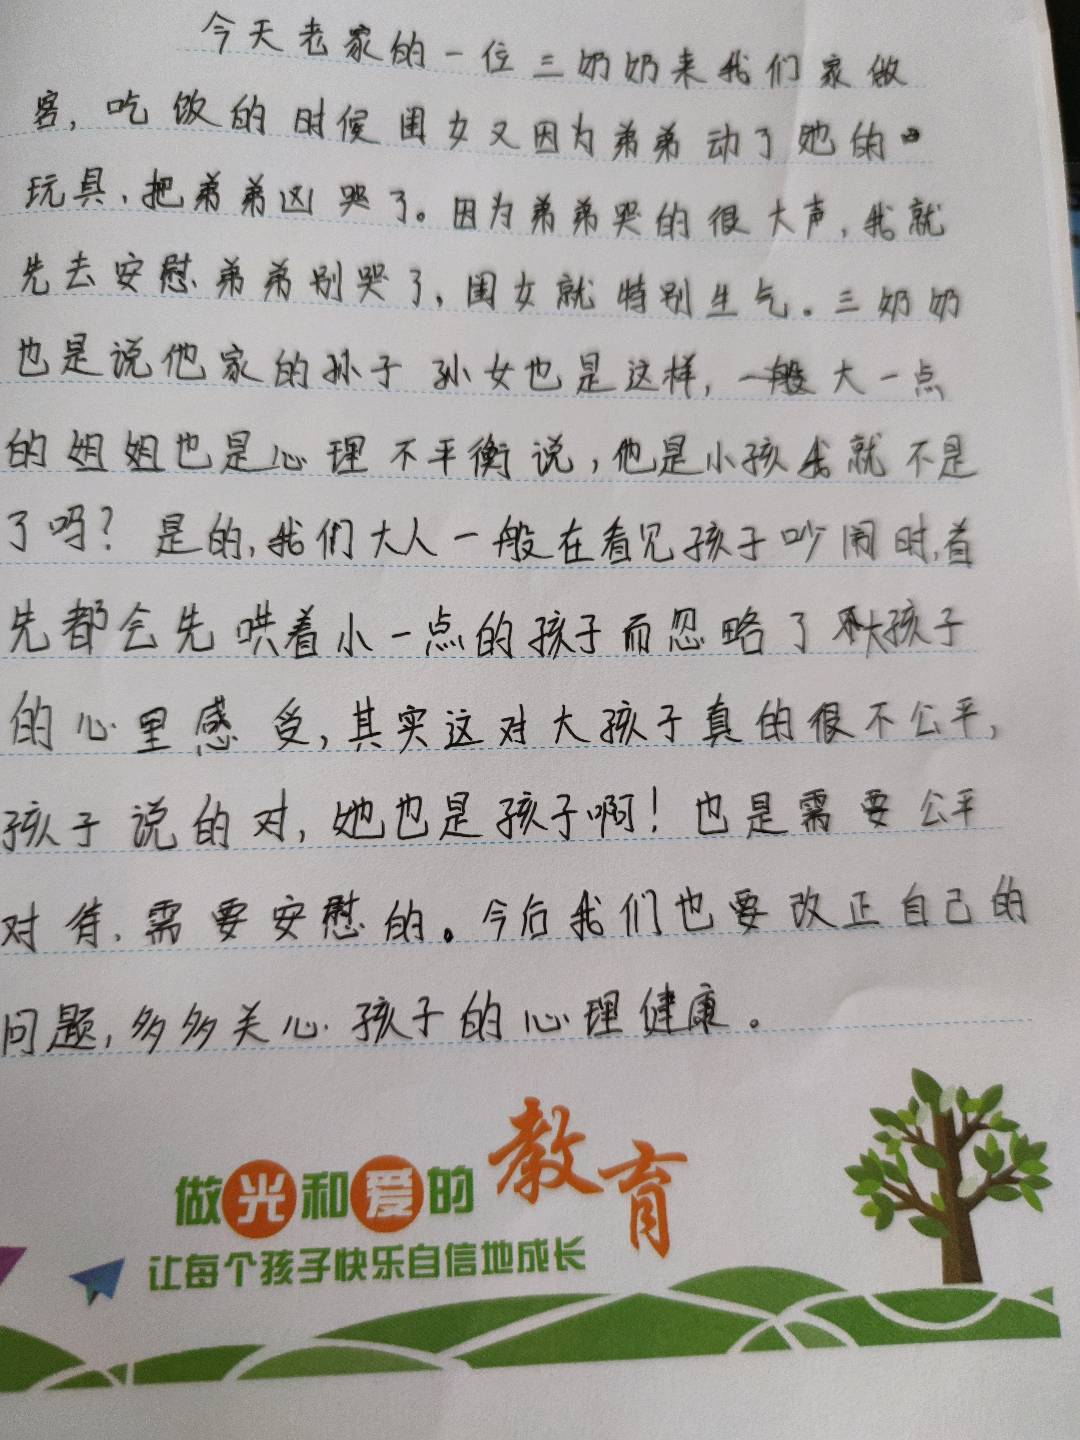 今天老家的一位三奶奶来我们家做
客，吃饭的时候闺女又因为弟弟动了她的
玩具，把弟弟凶哭了。因为弟弟哭的很大声，我就
先去安慰弟弟别哭了，闺女就特别生气。三奶奶
也是说他家的孙子孙女也是这样，一般大一点
的姐姐也是心理不平衡说，他是小孩我就不是
了吗？是的，我们大人一般在看见孩子吵闹时，首
先都会先哄着小一点的孩子而忽略了大孩子
的心里感受，其实这对大孩子真的很不公平，
孩子说的对，她也是孩子啊！也是需要公平
对待，需要安慰的。今后我们也要改正自己的
问题，多多关心孩子的心理健康。
做光和爱的教育
让每个孩子快乐自信地成长